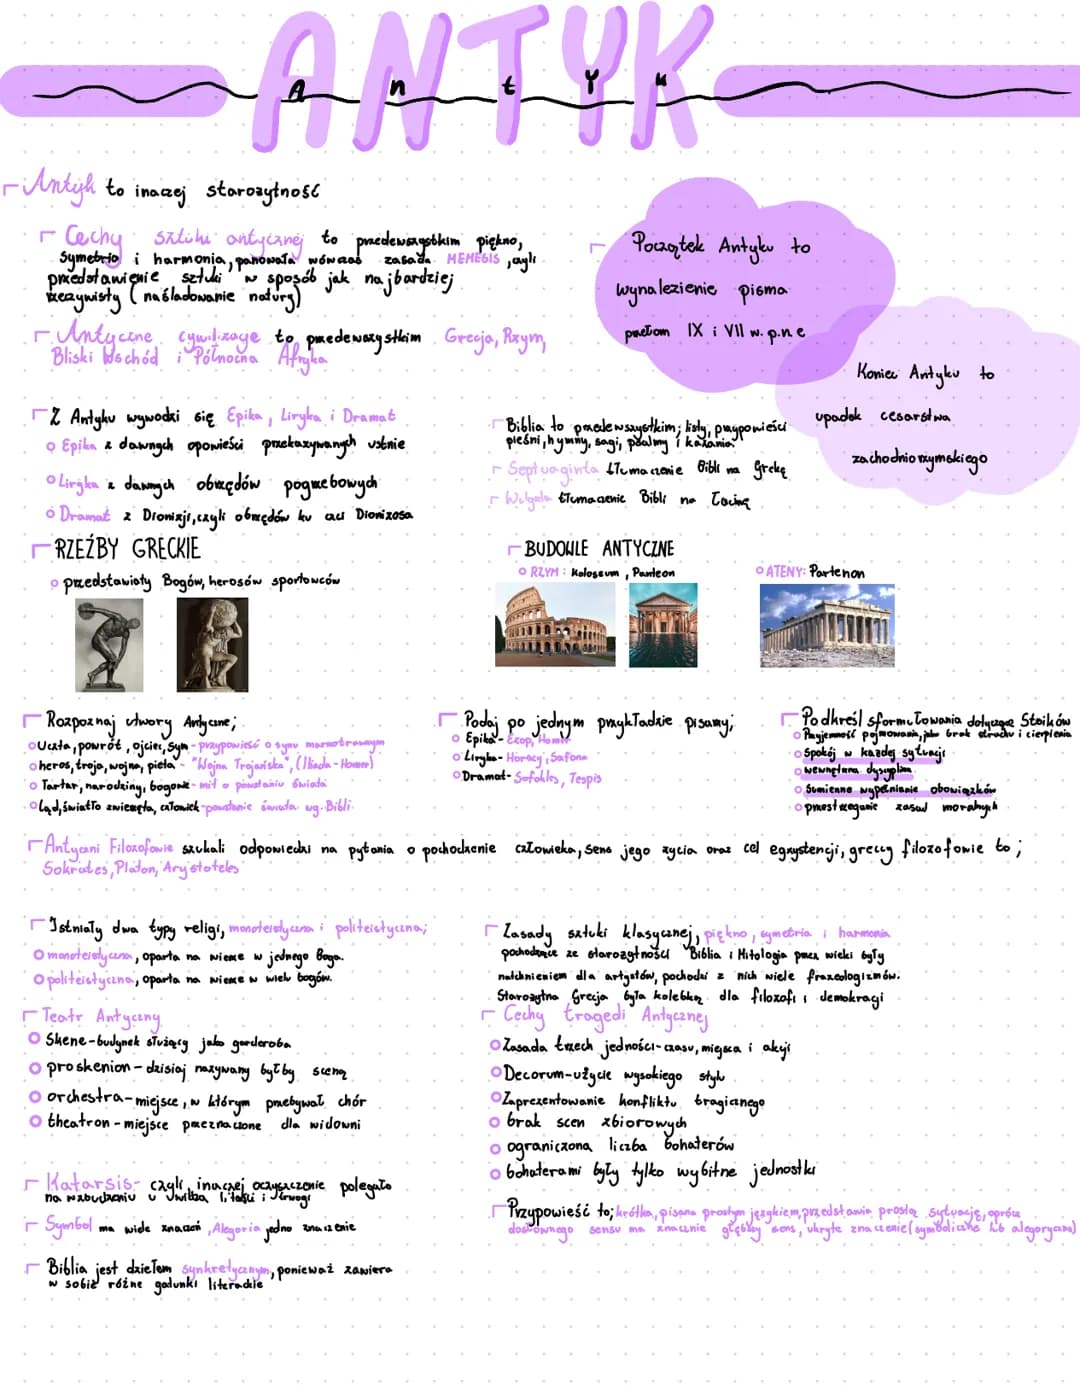 ANTYK
Antyk
Antyk to inaczej starożytność
Cechy sztuki antycznej to przedewszystkim piękno,
symetria i harmonia, panowała wówczas zasada MEMESIS, czyli
przedstawienie sztuki w sposób jak najbardziej
rzeczywisty (naśladowanie natury)
Antyczne cywilizacje to przedewszystkim Grecja, Rzym,
Bliski Wschód i Północna Afryka
Początek Antyku to
wynalezienie pisma
przełom IX i VII w. p.n.e
Koniec Antyku to
upadek cesarstwa
zachodniorzymskiego
Z Antyku wywodzi się Epika, Liryka i Dramat
Epika z dawnych opowieści przekazywanych ustnie
Liryka z dawnych obrzędów pogrzebowych
Dramat z Dionizji, czyli obrzędów ku czci Dionizosa
Biblia to przedewszystkim; listy, przypowieści
pieśni, hymny, sagi, psalmy i kazania
Septuaginta tłumaczenie Bibli na Grekę
Wulgata tłumaczenie Bibli na Łacinę
RZEŹBY GRECKIE
przedstawiały Bogów, herosów sportowców
BUDOWLE ANTYCZNE
RZYM: Koloseum, Panteon
ATENY: Partenon
Rozpoznaj utwory Antyczne;
Uczta, powrót, ojciec, syn - przypowieść o synu marnotrawnym
heros, troja, wojna, pieta - "Wojna Trojańska", (Iliada - Homer)
Tartar, narodziny, bogowie - mit o powstaniu świata
Ląd, światło zwierzęta, człowiek - powstanie świata wg. Bibli
Podaj po jednym przykładzie pisarzy;
Epika - Ezop, Homer
Liryka - Horacy, Safona
Dramat - Sofokles, Tespis
Podkreśl sformułowania dotyczące Stoików
Przyjemność pojmowana, jako brak strachu i cierpienia
Spokój w każdej sytuacji
wewnętrzna dyscyplina
Sumienne wypełnianie obowiązków
przestrzeganie zasad moralnych
Antyczni Filozofowie szukali odpowiedzi na pytania o pochodzenie człowieka, sens jego życia oraz cel egzystencji, greccy filozofowie to;
Sokrates, Platon, Arystoteles
Istniały dwa typy religi, monoteistyczna i politeistyczna;
monoteistyczna, oparta na wierze w jednego Boga.
politeistyczna, oparta na wierze w wielu bogów.
Zasady sztuki klasycznej, piękno, symetria i harmonia
pochodzące ze starożytności Biblia i Mitologia przez wieki były
natchnieniem dla artystów, pochodzi z nich wiele frazeologizmów.
Starożytna Grecja była kolebką dla filozofi i demokracji
Teatr Antyczny
Skene - budynek służący jako garderoba
proskenion - dzisiaj nazywany byłby sceną
orchestra - miejsce, w którym przebywał chór
theatron - miejsce przeznaczone dla widowni
Cechy tragedi Antycznej
Zasada trzech jedności - czasu, miejsca i akcji
Decorum - użycie wysokiego stylu
Zaprezentowanie konfliktu tragicznego
brak scen zbiorowych
ograniczona liczba bohaterów
bohaterami były tylko wybitne jednostki
Katarsis - czyli inaczej oczyszczenie polegało
na wzbudzeniu u widza litości i trwogi
Symbol ma wiele znaczeń, Alegoria jedno znaczenie
Przypowieść to; krótka, pisana prostym językiem, przedstawia prostą sytuację, oprócz
dosłownego sensu ma znacznie głębszy sens, ukryte znaczenie (symboliczne lub alegoryczne)
Biblia jest dziełem synkretycznym, ponieważ zawiera
w sobie różne gatunki literackie